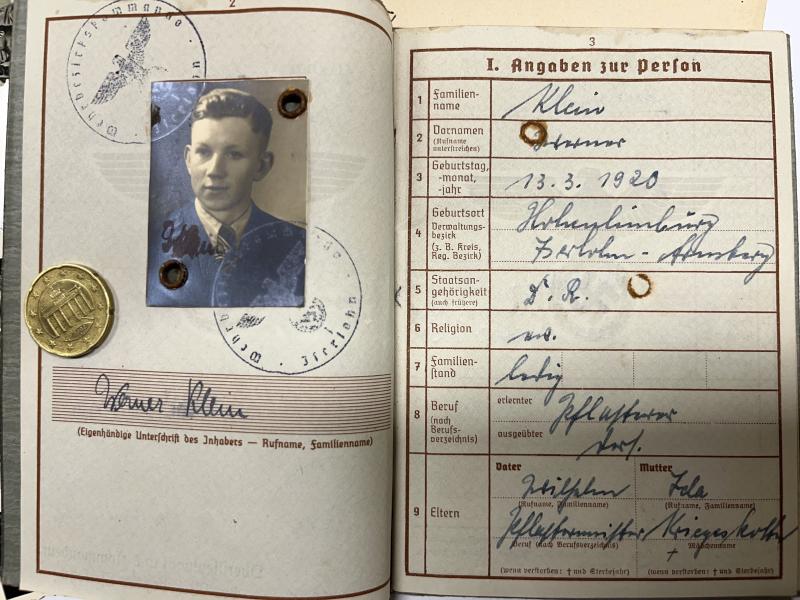 2
Wehrbezirkskommando
Wehrbezirkskommando Iserlohn
Werner Klein
(Eigenhändige Unterschrift des Inhabers — Rufname, Familienname)
3
I. Angaben zur Person
1 Familien-
name
Klein
2 Vornamen
(Rufname
unterstreichen)
Werner
3 Geburtstag,
-monat,
-jahr
13. 3. 1920
4 Geburtsort
Verwaltungs-
bezirk
(z. B. Kreis,
Reg. Bezirk)
Hohenlimburg
Iserlohn - Arnsberg
5 Staatsan-
gehörigkeit
(auch frühere)
D. R.
6 Religion
ev.
7 Familien-
stand
ledig
8 Beruf
(nach
Berufs-
verzeichnis)
erlernter
Pflasterer
ausgeübter
ders.
9 Eltern
Vater
Wilhelm
(Rufname, Familienname)
Pflastermeister
Beruf (nach Berufsverzeichnis)
(wenn verstorben: † und Sterbejahr)
Mutter
Ida
(Rufname, Familienname)
Mädchenname
†
(wenn verstorben: † und Sterbejahr)